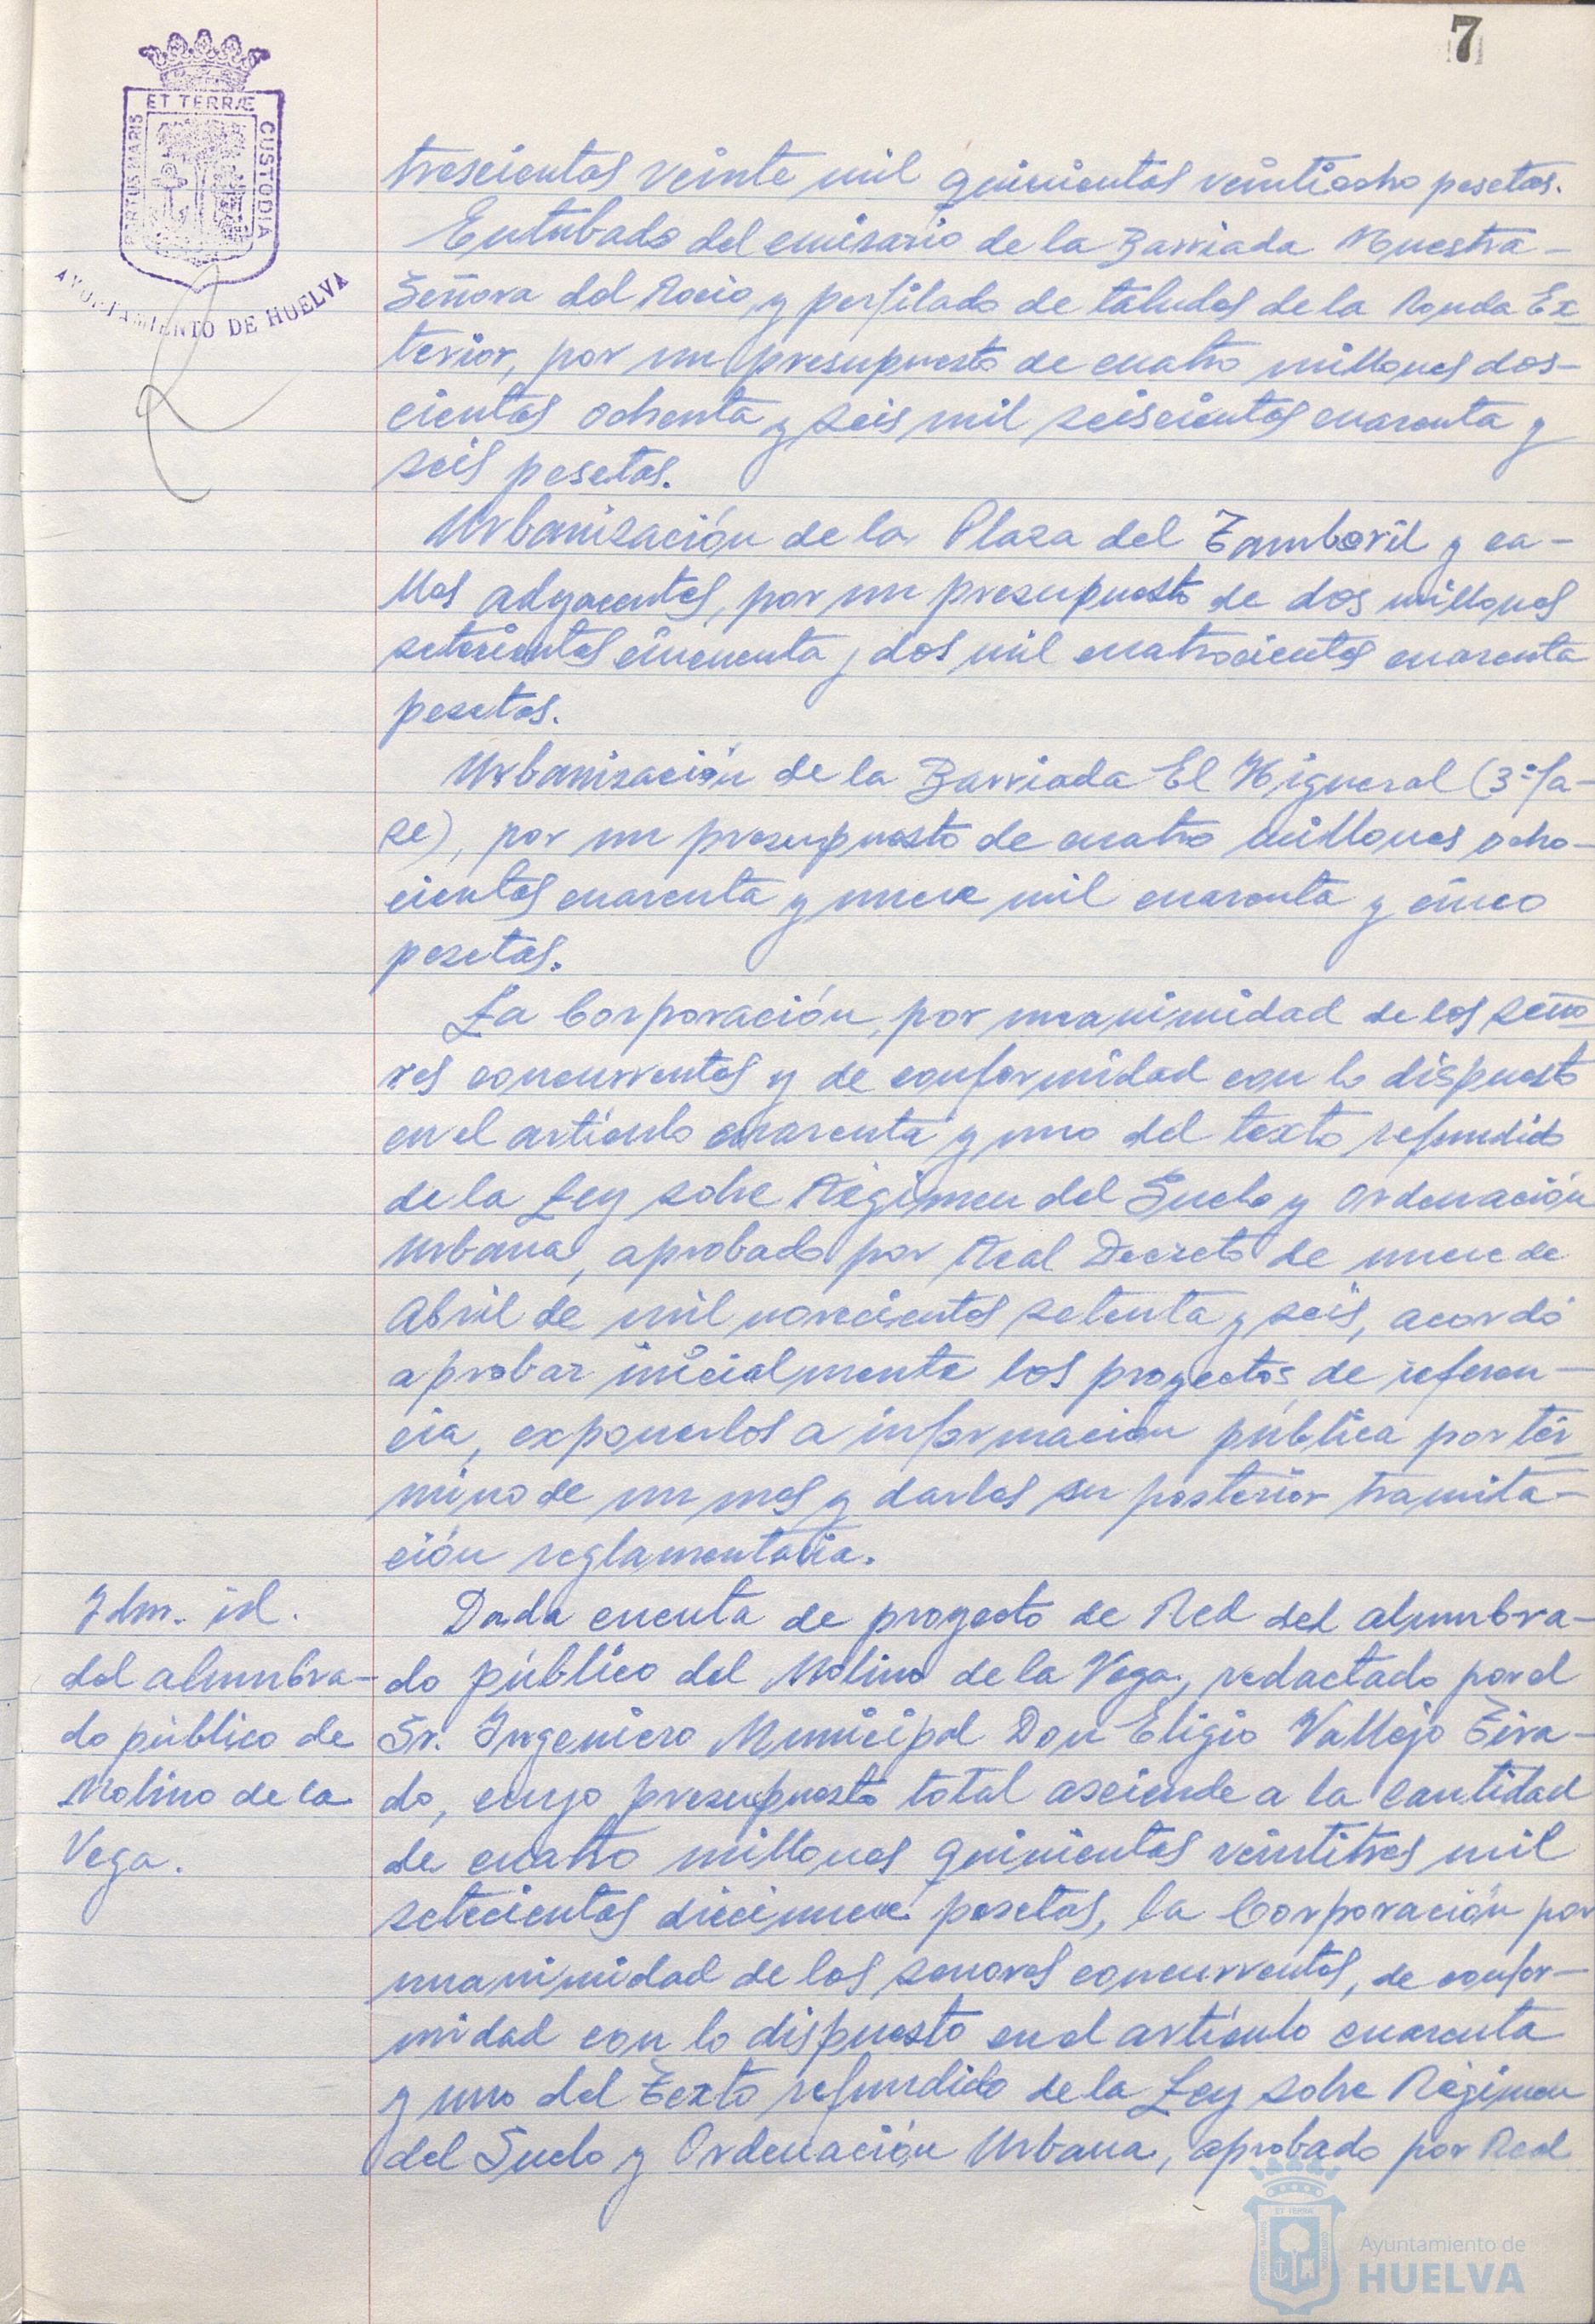 7
ET TERRÆ
PORTUS MARIS
CUSTODIA
AYUNTAMIENTO DE HUELVA
trescientas veinte mil quinientas veintiocho pesetas.
Entubado del emisario de la Barriada Nuestra
Señora del Rocio, y perfilado de taludes de la Ronda Ex
terior, por un presupuesto de cuatro millones dos-
cientas ochenta y seis mil seiscientas cuarenta y
seis pesetas.
Urbanización de la Plaza del Tamboril y ca-
lles adyacentes, por un presupuesto de dos millones
setecientas cincuenta y dos mil cuatrocientas cuarenta
pesetas.
Urbanización de la Barriada El Higueral (3ª fa-
se), por un presupuesto de cuatro millones ocho-
cientas cuarenta y nueve mil cuarenta y cinco
pesetas.
La Corporación, por unanimidad de los seño
res concurrentes y de conformidad con lo dispuesto
en el artículo cuarenta y uno del texto refundido
de la Ley sobre Régimen del Suelo y Ordenación
Urbana, aprobado por Real Decreto de nueve de
Abril de mil novecientos setenta y seis, acordó
aprobar inicialmente los proyectos de referen-
cia, exponerlos a información pública por tér
mino de un mes y darles su posterior tramita-
ción reglamentaria.
Idm. id.
del alumbra-
do público de
Molino de la
Vega.
Dada cuenta de proyecto de Red del alumbra-
do público del Molino de la Vega, redactado por el
Sr. Ingeniero Municipal Don Eligio Vallejo Tira-
do, cuyo presupuesto total asciende a la cantidad
de cuatro millones quinientas veintitres mil
setecientas diecinueve pesetas, la Corporación por
unanimidad de los senores concurrentes, de confor-
midad con lo dispuesto en el artículo cuarenta
y uno del Texto refundido de la Ley sobre Régimen
del Suelo y Ordenación Urbana, aprobado por Real
Ayuntamiento de
HUELVA